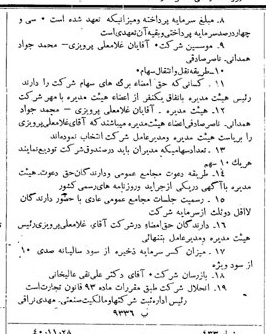 ۸. مبلغ سرمایه پرداخته ومیزانیکه تعهد شده است • سی و
چهاردرصدسرمایه پرداختی وبقیه آن تعهدی است
۹. موسسین شرکت • آقایان غلامعلی پرویزی - محمد جواد
همدانی. ناصرصادقی
۱۰-طریقه نقل وانتقال سهام •
۱۱. کسانی که حق امضاء برگ های سهام شرکت را دارند
رئیس هیئت مدیره باتفاق یکنفر از اعضاء هیئت مدیره با مهر شرکت
۱۲. هیئت مدیره. آقایان غلامعلی پرویزی - محمد جواد
همدانی. ناصرصادقی اعضاء هیئت مدیره میباشند که آقای غلامعلی پرویزی
را بریاست هیئت مدیره ومدیرعامل شرکت انتخاب نموده اند
۱۳. تعدادسهامیکه مدیران باید درصندوق شرکت تودیع نمایند
هریک ۱۰ سهم
۱۴. طریقه دعوت مجامع عمومی ودارندگان حق دعوت. هیئت
مدیره باآگهی دریکی ازجراید وروزنامه های رسمی کشور
۱۵. رسمیت جلسات مجامع عمومی عادی با حضور دارندگان
لااقل دوثلث ازسرمایه شرکت
۱۶. دارندگان حق امضاء درشرکت آقای غلامعلی پرویزی رئیس
هیئت مدیره ومدیرعامل بتنهائی
۱۷. میزان کسر سرمایه ذخیره از سود سالیانه صدی ۱۰
از سود ویژه
۱۸. بازرسان شرکت • آقای دکتر علی نقی عالیخانی
۱۹. انحلال شرکت طبق مقررات ماده ۹۳ قانون تجارت است
رئیس اداره ثبت شرکتها ومالکیت صنعتی. مهدی نراقی
۹۳۳۶